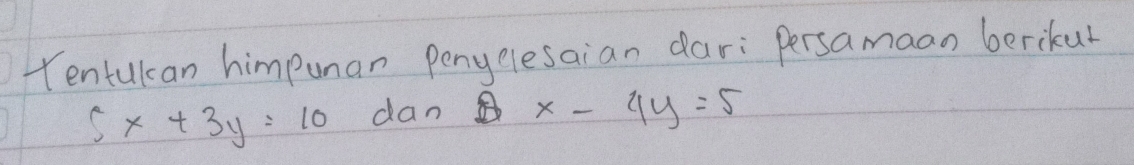 Tentukan himpunan penyelesaian dari persamaan berikut
5x + 3y = 10 dan x - 4y = 5